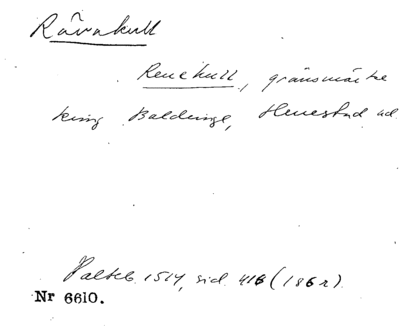 Råvakull
Renekull, gränsmärke
kring Baldringe, Henestad ud.
Palteb. 1514, sid. 416 (186 r).
Nr 6610.